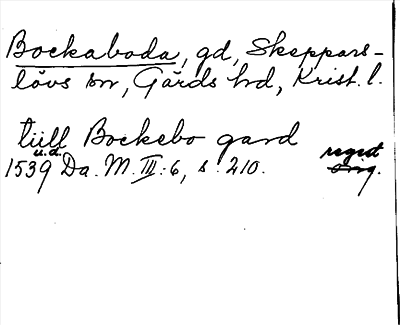 Bockaboda, gd, Skeppars-
lövs sn, Gärds hd, Krist. l.
tiill Bockebo gard
u.d.
1539 Da. M. III: 6, s. 210.
regest
orig.